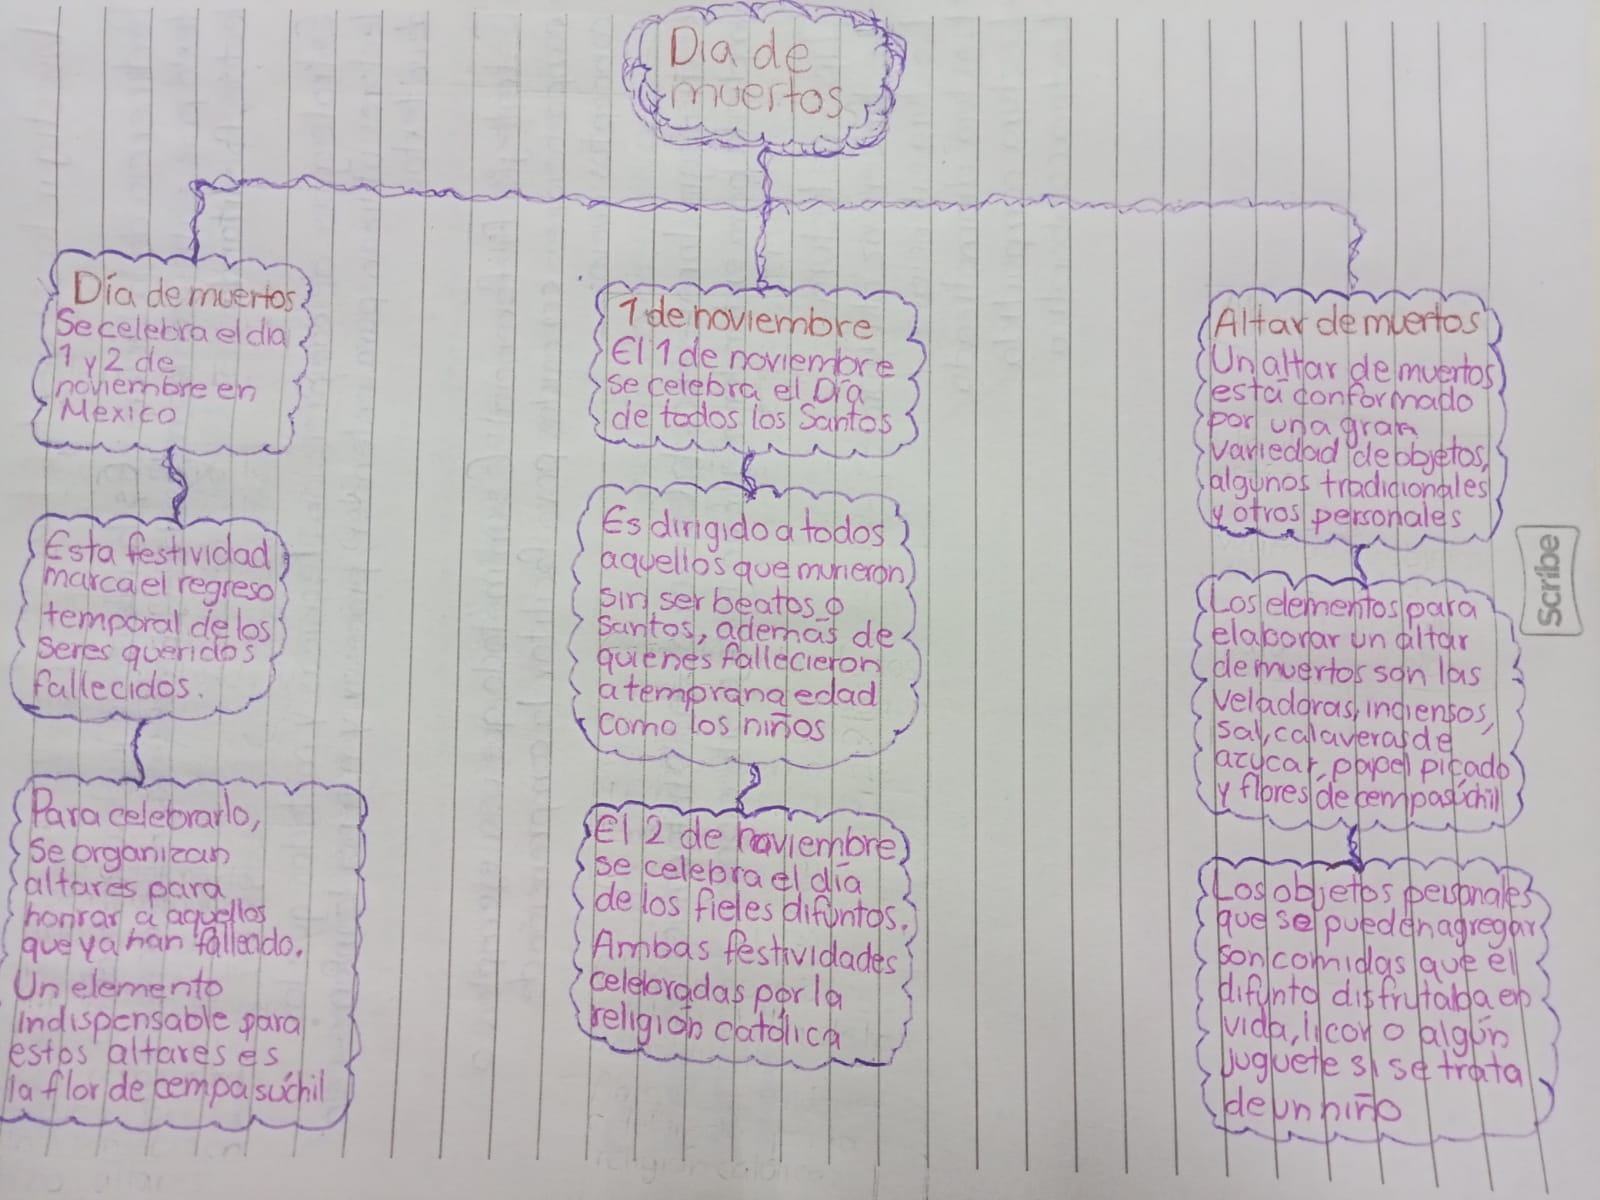 Dia de
muertos
Día de muertos
Se celebra el dia
1 y 2 de
noviembre en
Mexico
Esta festividad
marca el regreso
temporal de los
seres queridos
fallecidos.
Para celebrarlo,
se organizan
altares para
honrar a aquellos
que ya han falleado.
Un elemento
indispensable para
estos altares es
la flor de cempasúchil
1 de noviembre
El 1 de noviembre
se celebra el Día
de todos los Santos
Es dirigido a todos
aquellos que murieron
sin ser beatos o
santos, además de
quienes fallecieron
a temprana edad
como los niños
El 2 de noviembre
se celebra el día
de los fieles difuntos.
Ambas festividades
celebradas por la
religión católica
Altar de muertos
Un altar de muertos
está conformado
por una gran
variedad de objetos,
algunos tradicionales
y otros personales
Los elementos para
elaborar un altar
de muertos son las
veladoras, inciensos,
sal, calaveras de
azucar, papel picado
y flores de cempasúchil
Los objetos personales
que se pueden agregar
son comidas que el
difunto disfrutaba en
vida, licor o algún
juguete si se trata
de un niño
Scribe